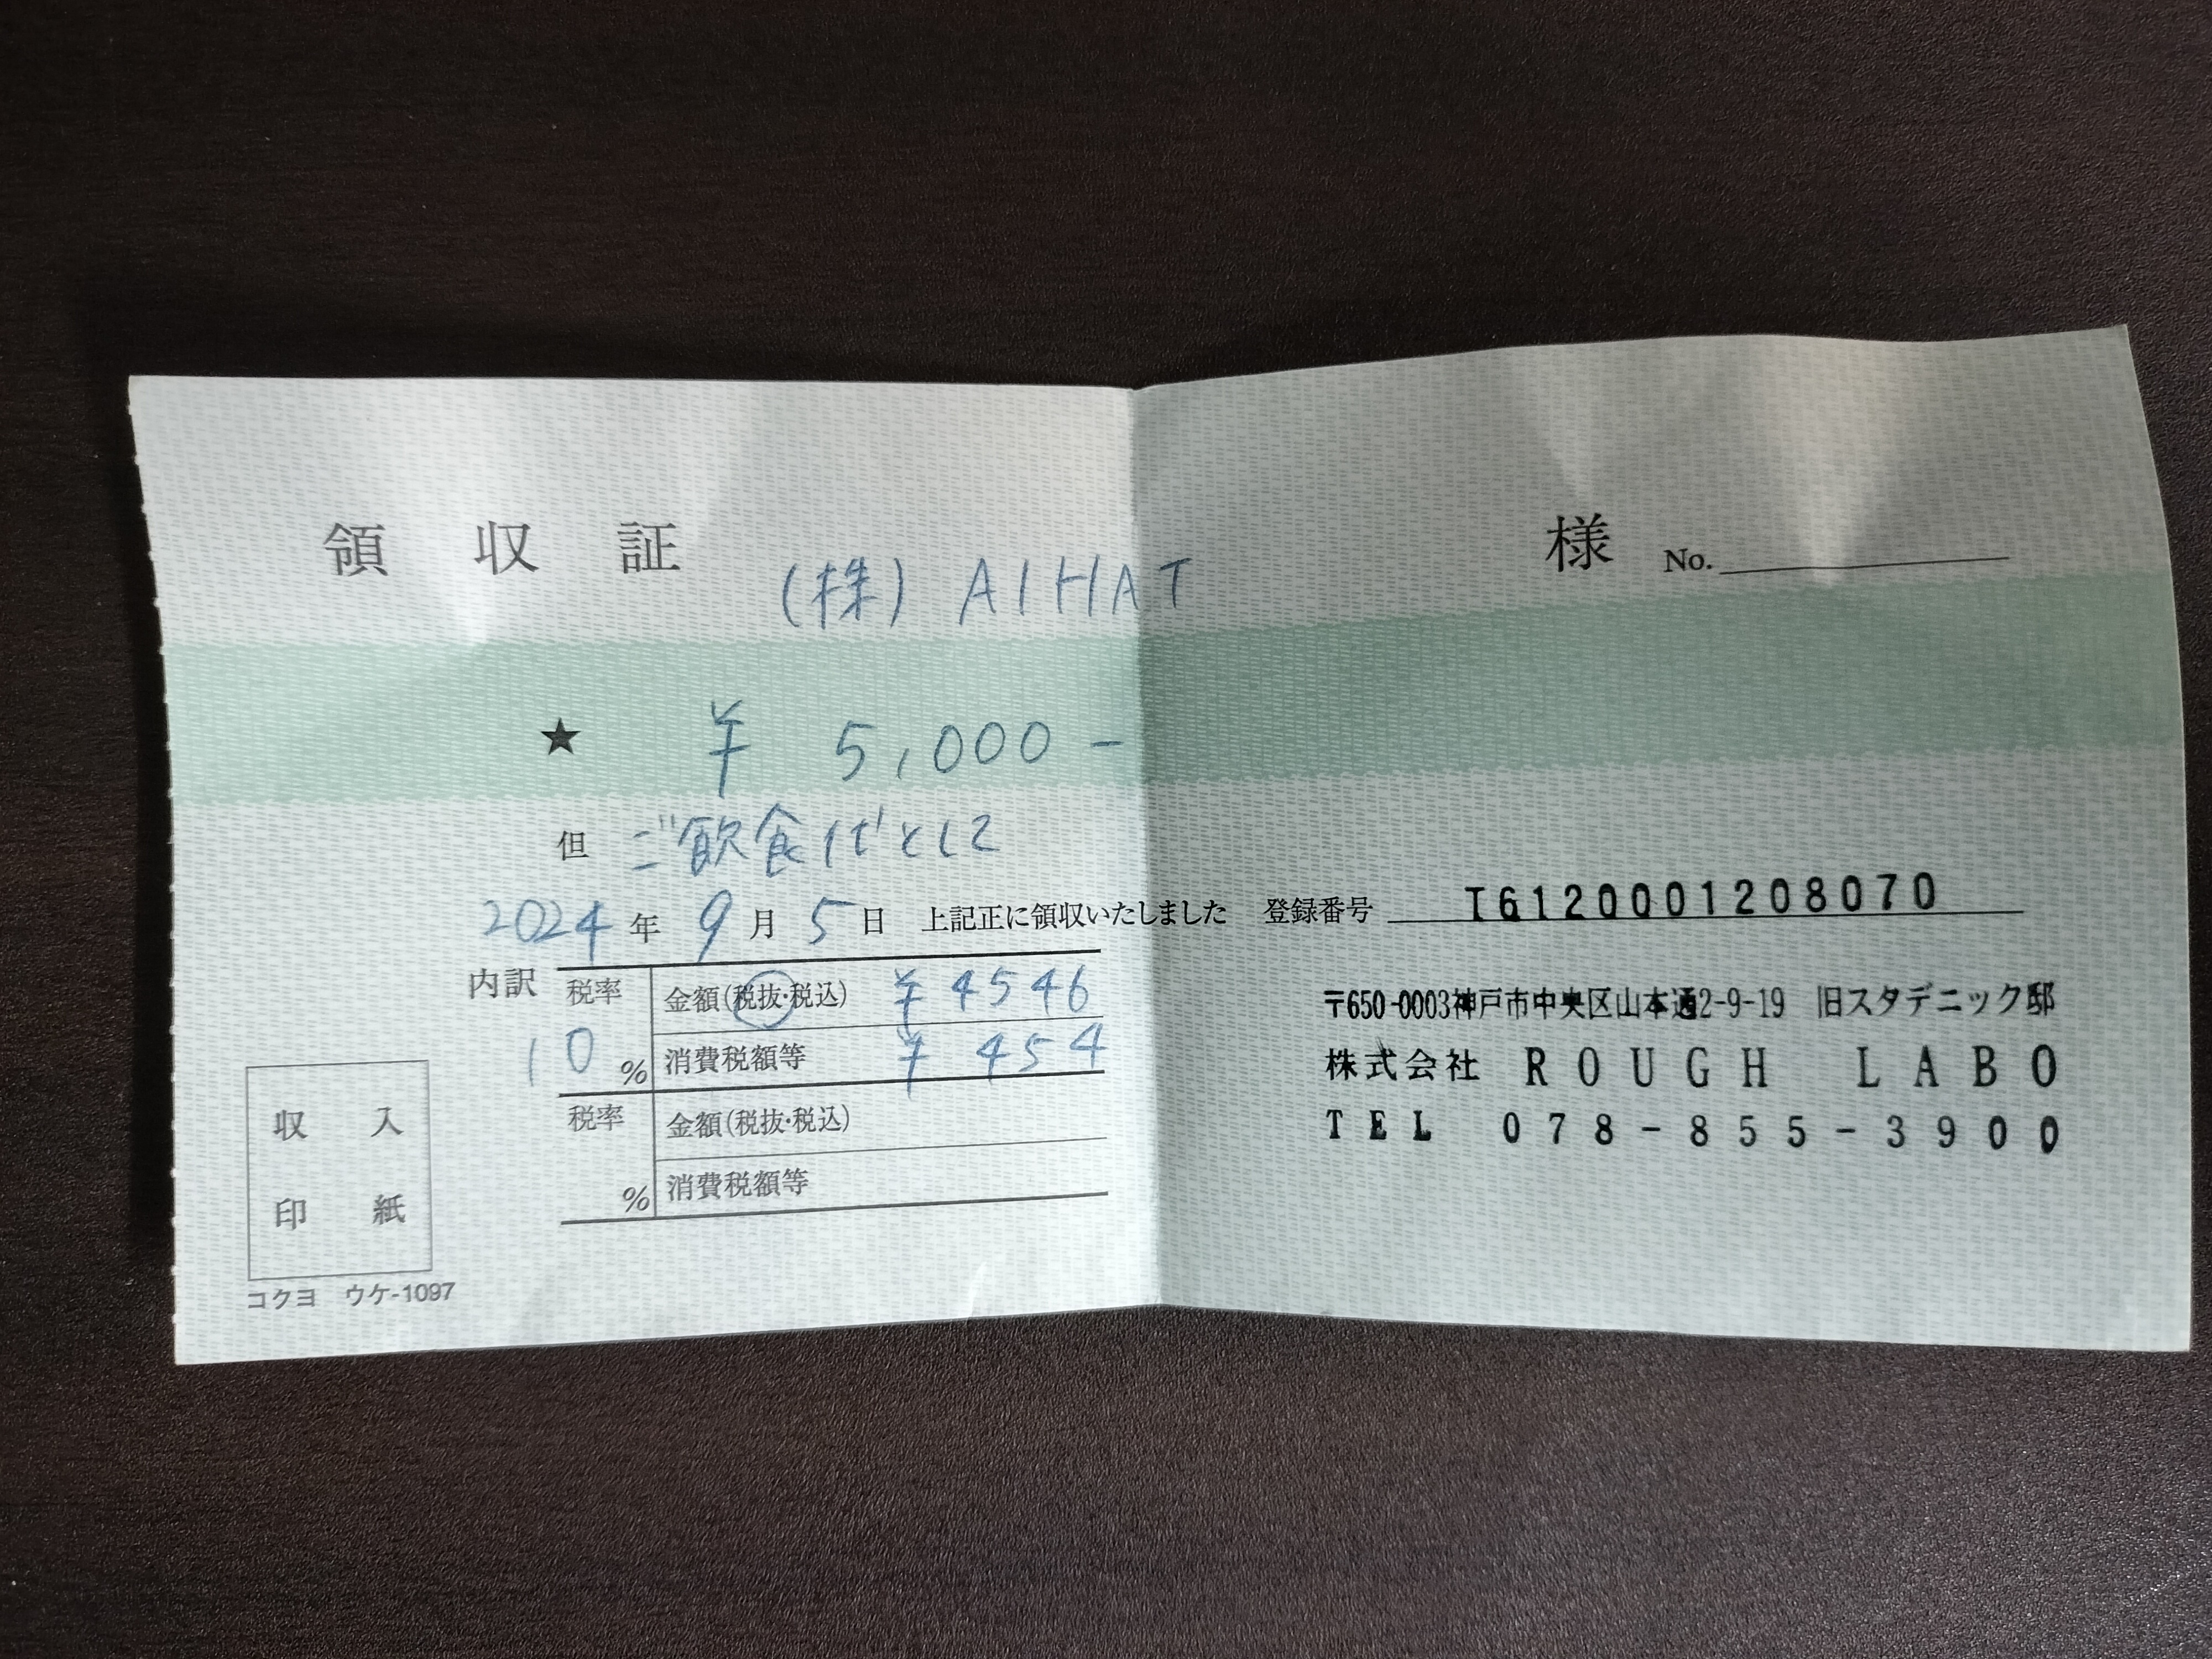 領収証 (株) AIHAT 様 No.
★ ¥ 5,000-
但 ご飲食代として
2024年 9月 5日 上記正に領収いたしました 登録番号 T6120001208070
内訳 税率 10% 金額(税抜・税込) ¥4546
消費税額等 ¥454
税率 % 金額(税抜・税込)
消費税額等
収入
印紙
コクヨ ウケ-1097
〒650-0003神戸市中央区山本通2-9-19 旧スタデニック邸
株式会社 ROUGH LABO
TEL 078-855-3900